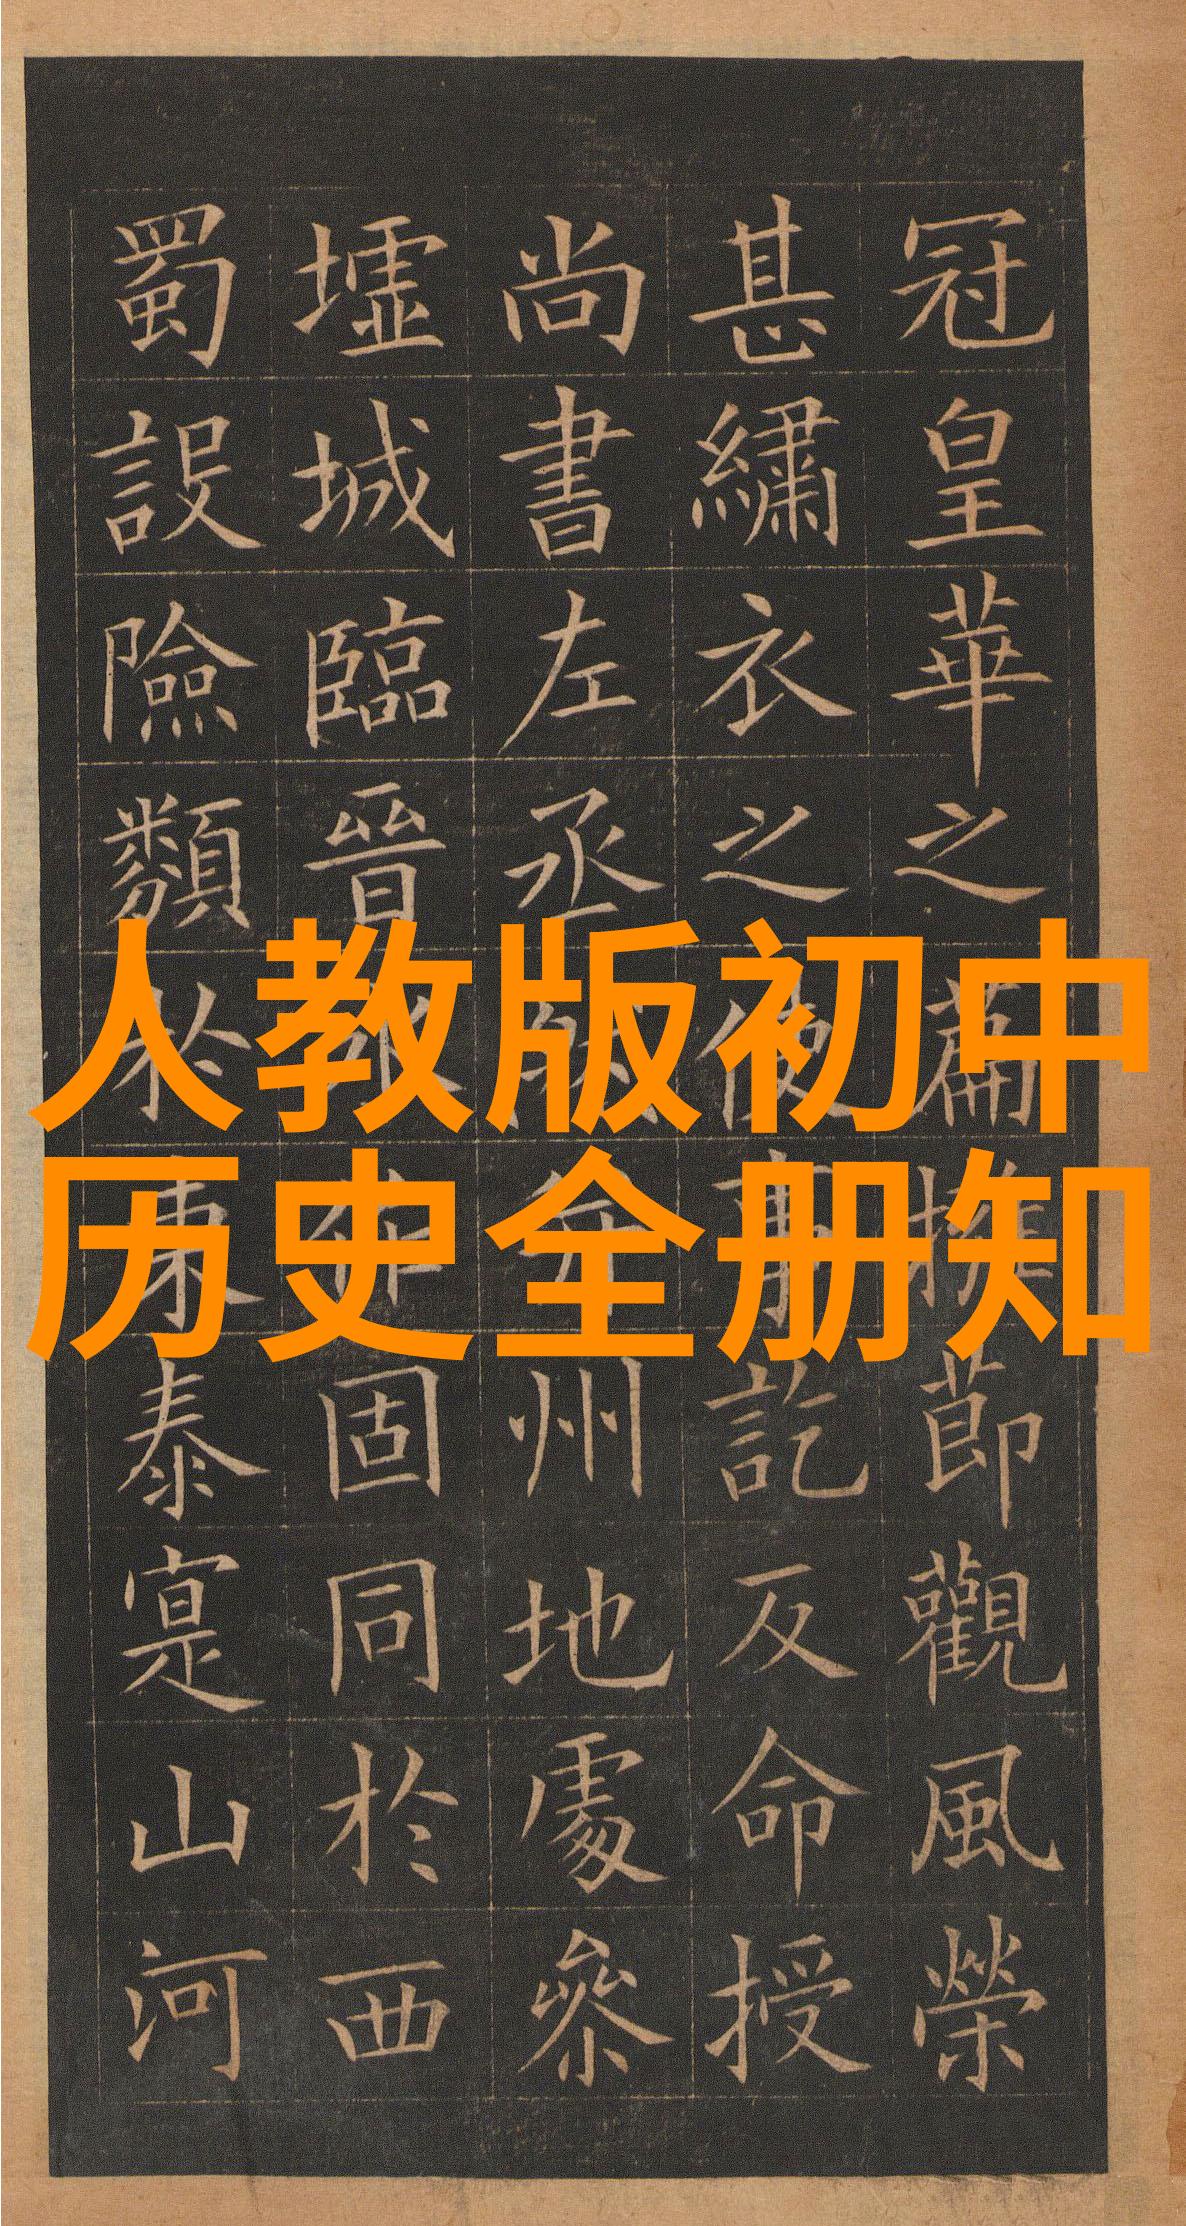 人教版初中
历史全册知
冠皇華之篇擁節觀風榮
甚繡衣之使事訖反命授
尚書左丞并州地處參
墟城臨晉水作固同於西
蜀設險類於東秦寔山河